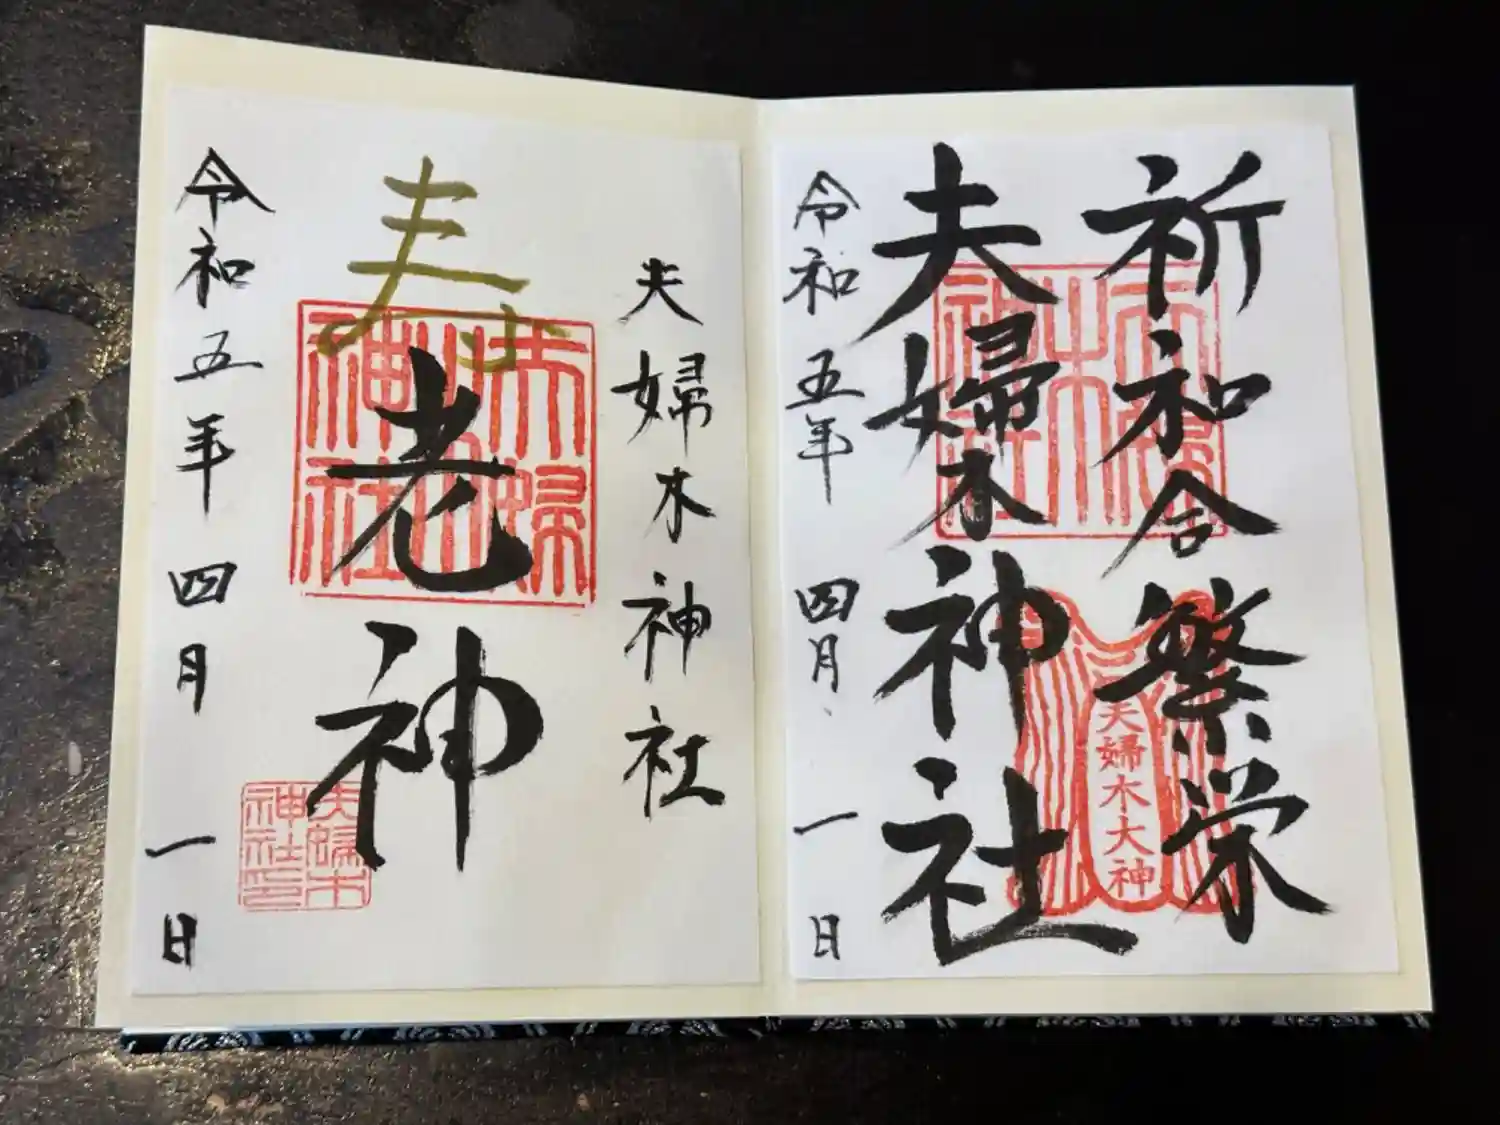 祈和合繁栄
夫婦木神社
夫婦木大神
令和五年四月一日
夫婦木神社
寿
老神
夫婦木神社印
令和五年四月一日